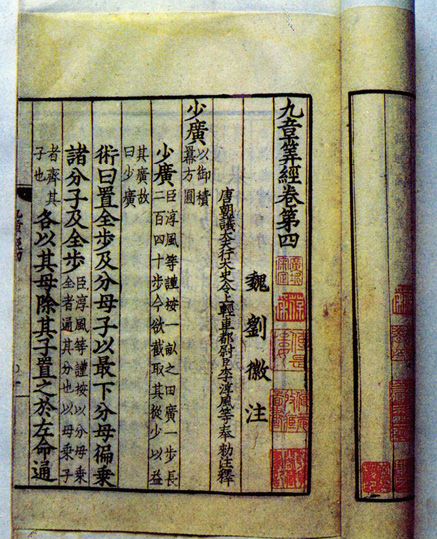 九章筭經卷第四
魏劉徽注
唐朝議大夫行太史令上輕車都尉臣李淳風等奉勑注釋
少廣
以御積
冪方圓
少廣
臣淳風等謹按一畝之田廣一步長
二百四十步今欲截取其從少以益
其廣故
曰少廣
術曰置全步及分母子以最下分母徧乘
諸分子及全步
臣淳風等謹按以分母乘
全者通其分也以母乘子
者齊其
子也
各以其母除其子置之於左命通